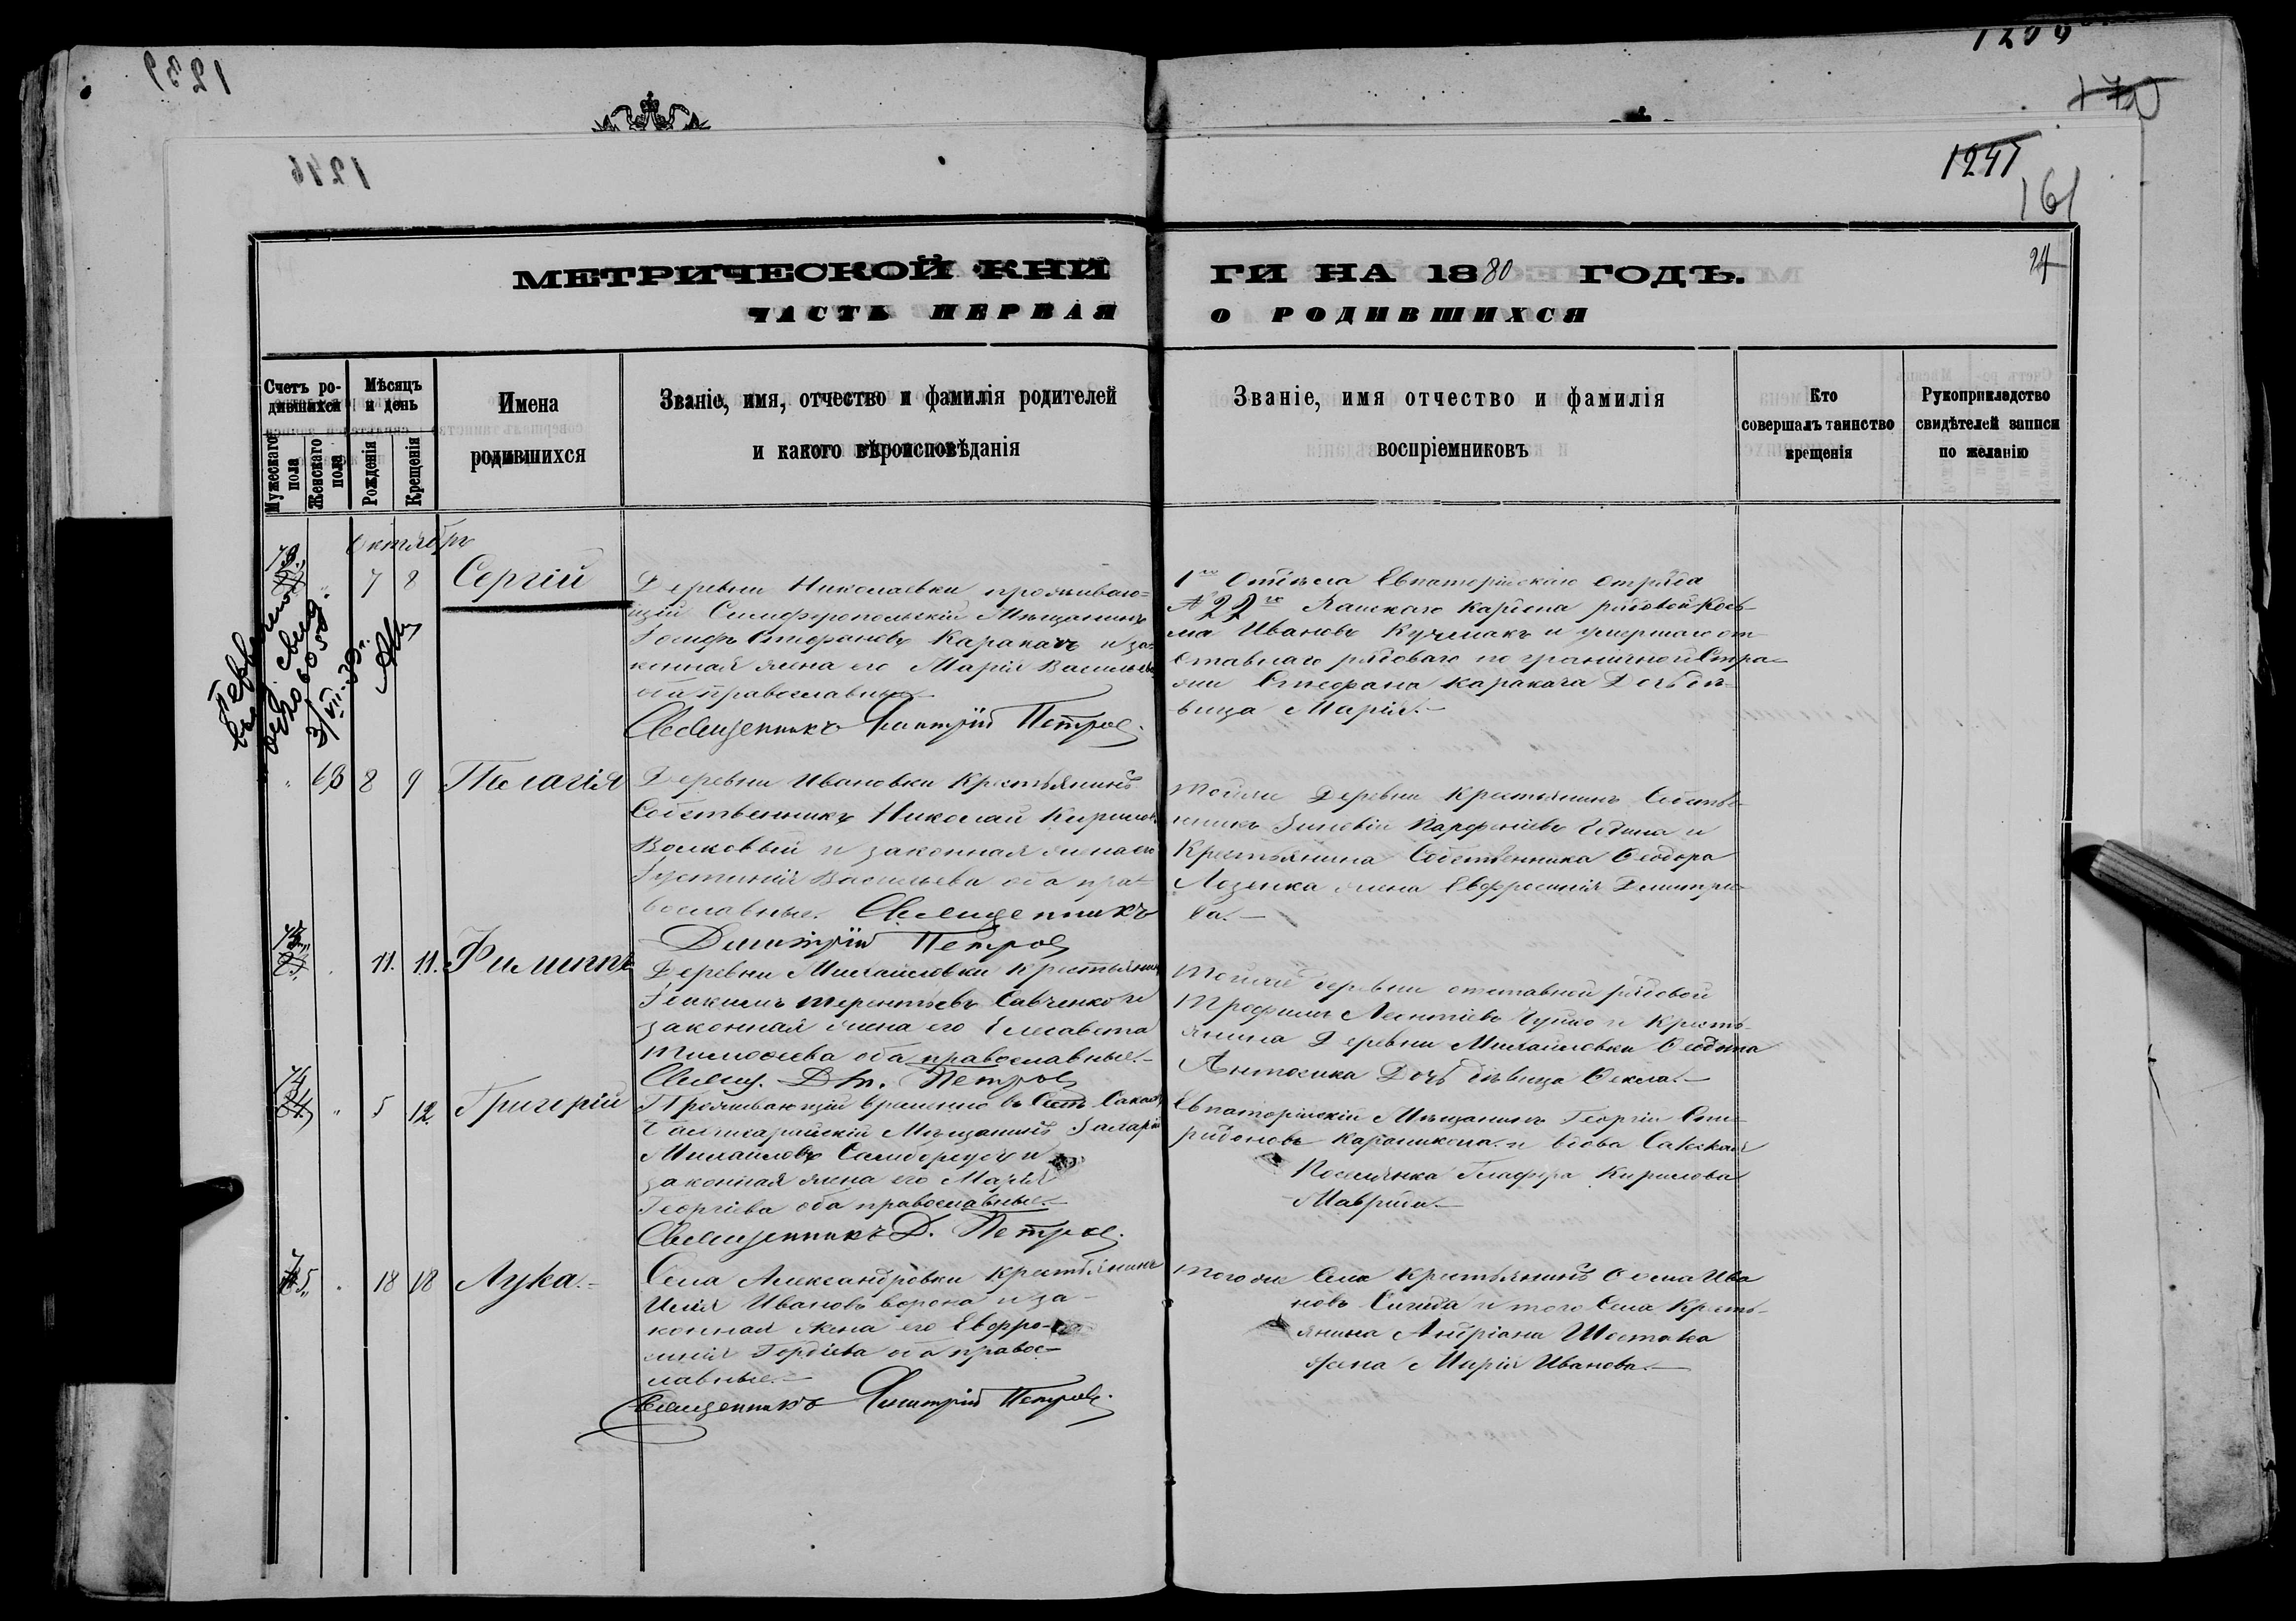 1239
1239
170
1246
1247
161
24
МЕТРИЧЕСКОЙ КНИ ГИ НА 1880 ГОДЪ.
ЧАСТЬ ПЕРВАЯ О РОДИВШИХСЯ
Счетъ ро-
дившихся
Мужескаго пола
Женскаго пола
Мѣсяцъ
и день
Рожденія
Крещенія
Имена
родившихся
Званіе, имя, отчество и фамилія родителей
и какого вѣроисповѣданія
Званіе, имя отчество и фамилія
воспріемниковъ
Кто
совершалъ таинство
крещенія
Рукоприкладство
свидѣтелей записи
по желанію
Октябрь
7 8 Сергій
Деревни Николаевки проживаю=
щій Симферопольскій Мѣщанинъ
Іосифъ Стефановъ Каракачъ и за=
конная жена его Марія Васильева
оба православные
Священникъ Димитрій Петровъ.
1го Отдѣла Евпаторійскаго Отряда
№ 22го кардона рядовой Козь-
ма Ивановъ Кучмакъ и умершаго от-
ставнаго рядоваго пограничной Стра-
жи Стефана Каракача Дочь дѣ-
вица Марія.
выд. свид.
3/VII-39г.
63 8 9 Пелагія
Деревни Ивановки Крестьянинъ
Собственникъ Николай Кириловъ
Волковый и законная жена его
Іустинія Васильева оба пра-
вославные. Священникъ
Димитрій Петровъ
Тойже Деревни Крестьянинъ Собстве-
нникъ Зиновій Парфеніевъ и
Крестьянина Собственника Ѳеодора
Лозенка жена Евфросинія Димитріе-
ва.
73 11. 11. Филиппъ
Деревни Михайловки Крестьянинъ
Іоакимъ Терентьевъ Савченко и
законная жена его Елисавета
Тимоѳеева оба православные.
Свящ. Дм. Петровъ
Тойже деревни отставной рядовой
Трофимъ Леонтіевъ и Кресть-
янина Деревни Михайловки
Дочь дѣвица Ѳекла.
74 5 12 Григорій
Проживающій временно въ Сакахъ
Мѣщанинъ
Михайловъ и
законная жена его Марія
Георгіева оба православные.
Священникъ Д. Петровъ.
Евпаторійскій Мѣщанинъ Георгій Спи-
ридоновъ и вдова Сакская
Поселянка Глафира Кирилова
Маврида.
75 18 18 Лука.
Села Александровки Крестьянинъ
Илія Ивановъ Ворона и за-
конная жена его Евфро-
синія Гордіева оба правос-
лавные.
Священникъ Димитрій Петровъ.
Тогоже Села Крестьянинъ Ѳома Ива
новъ Сигида и того Села Кресть-
янина Андріана Шостака
жена Марія Иванова.